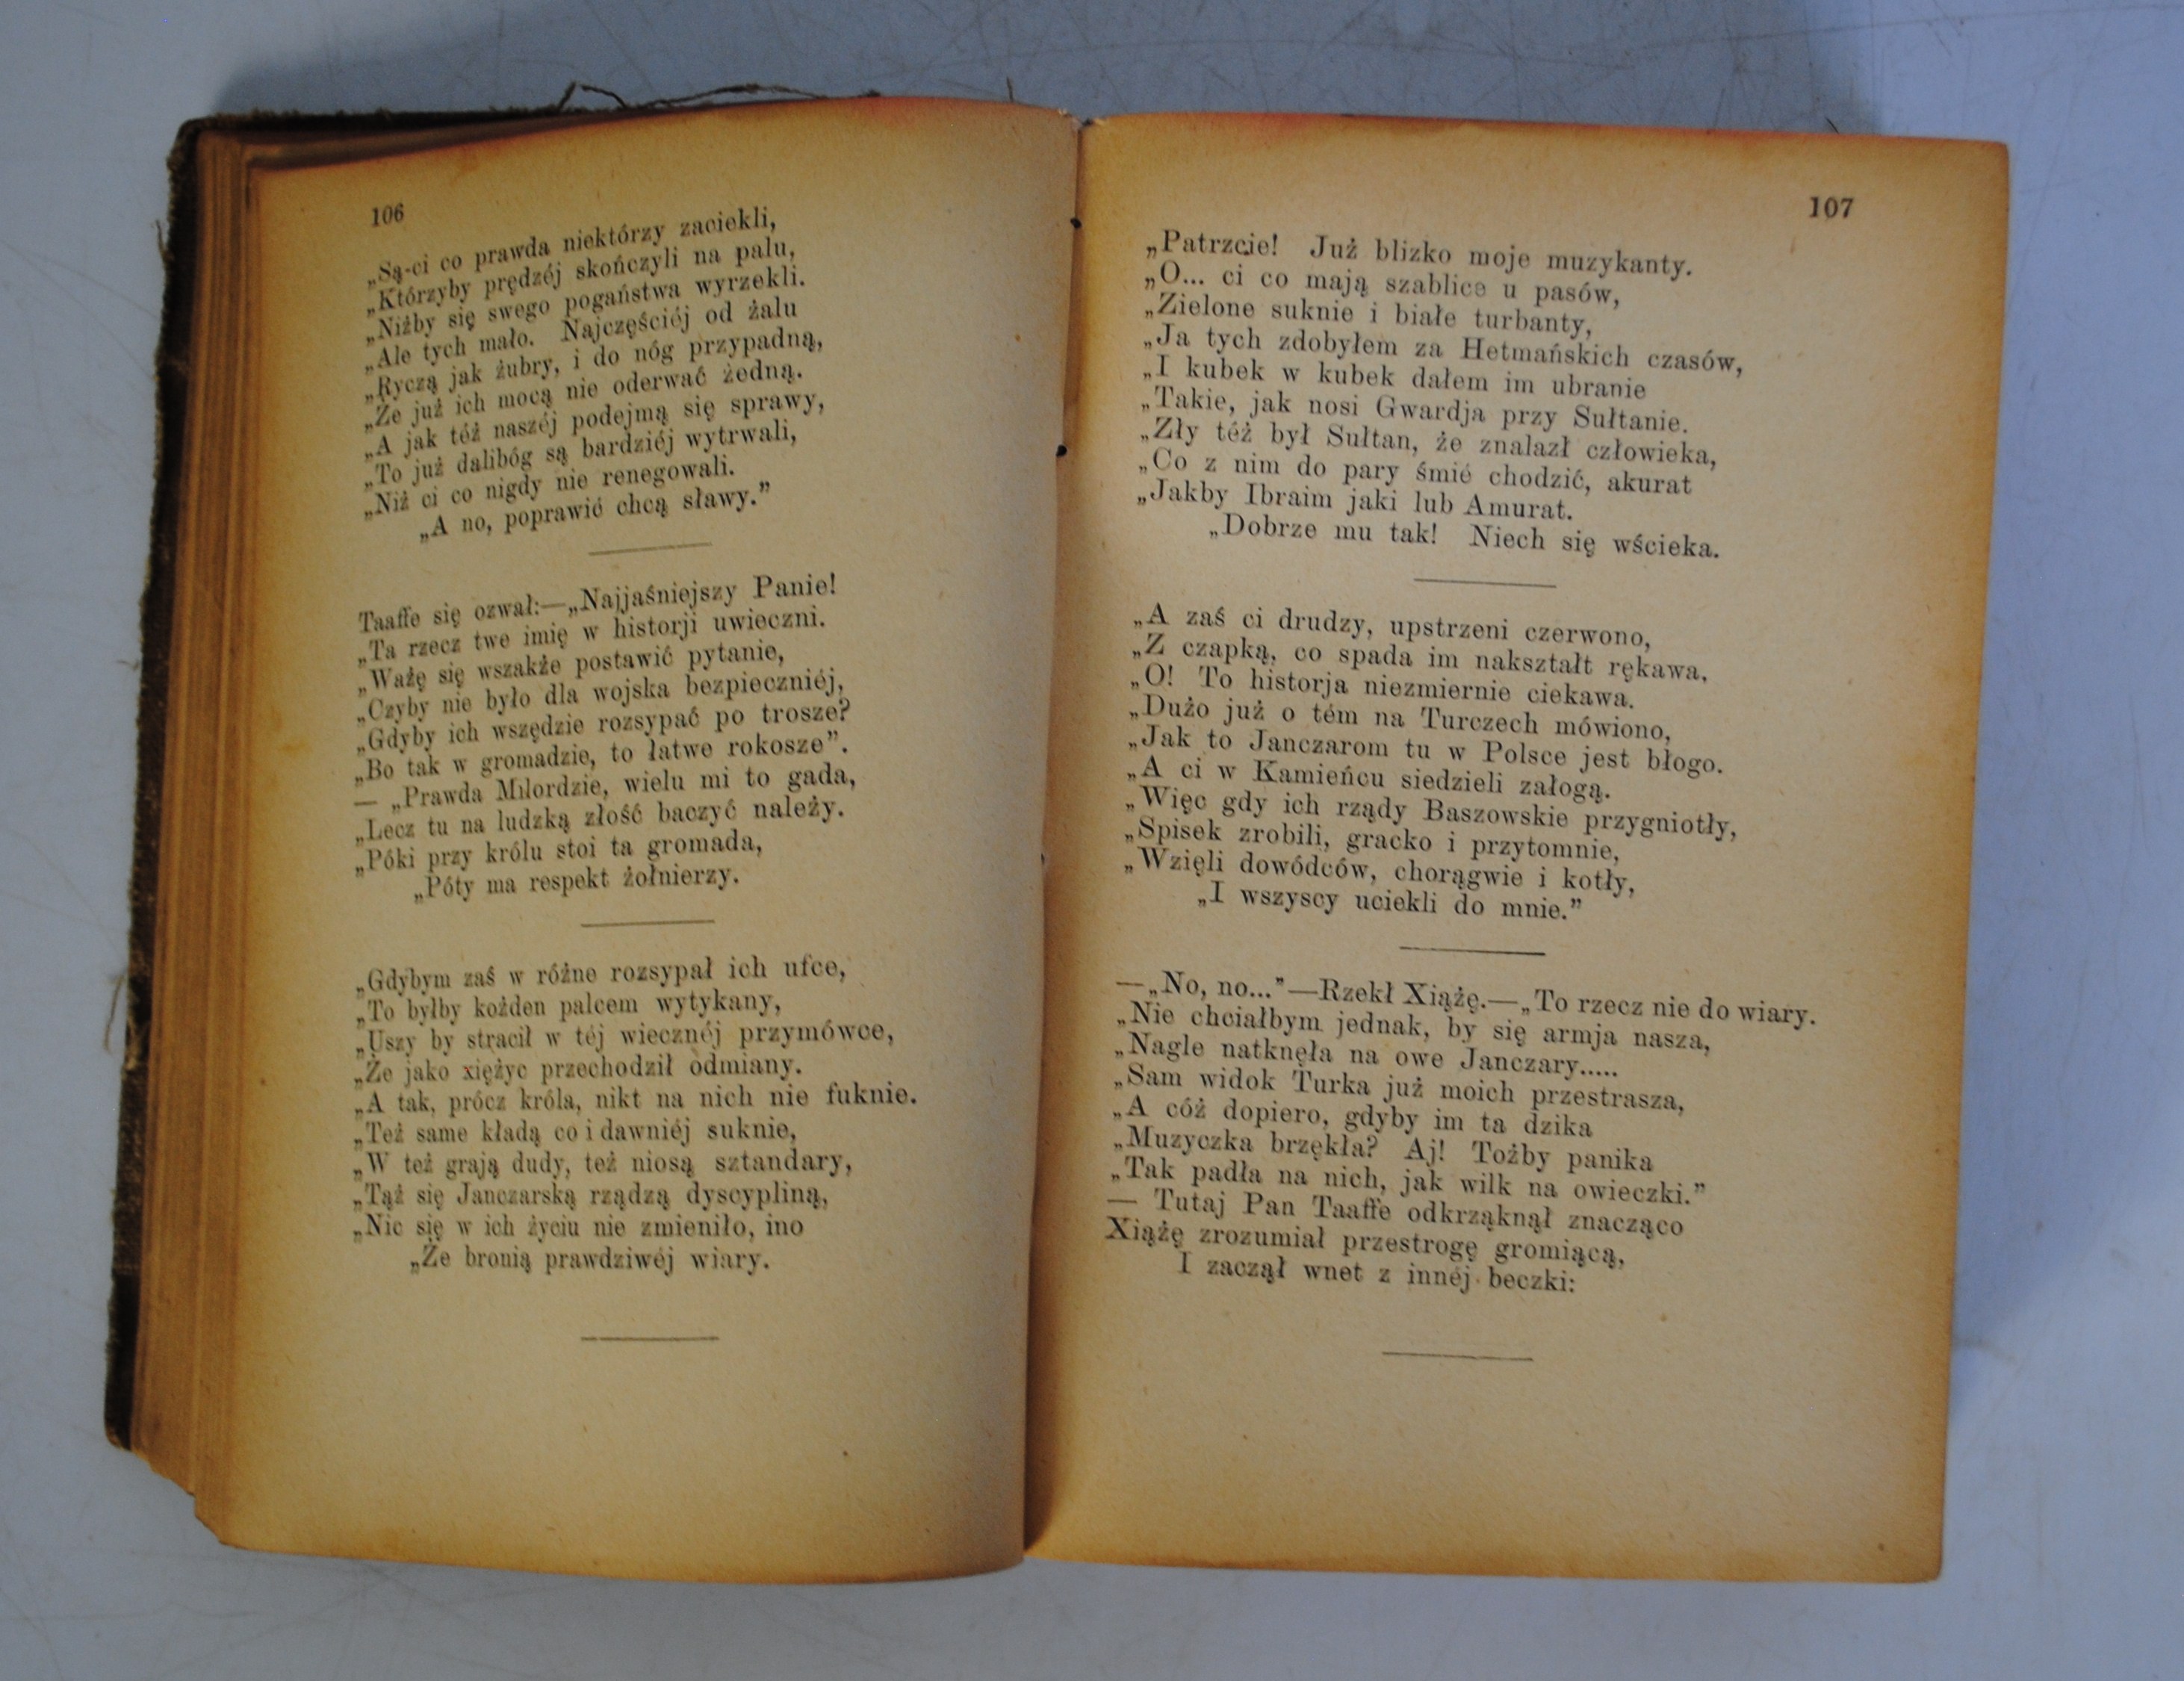 106
„Są-ci co prawda niektórzy zaciekli,
„Którzyby prędzéj skończyli na palu,
„Niżby się swego pogaństwa wyrzekli.
„Ale tych mało. Najczęściéj od żalu
„Ryczą jak żubry, i do nóg przypadną,
„Że już ich mocą nie oderwać żedną.
„A jak téż naszéj podejmą się sprawy,
„To już dalibóg są bardziéj wytrwali,
„Niż ci co nigdy nie renegowali.
„A no, poprawić chcą sławy.”
Taaffe się ozwał:—„Najjaśniejszy Panie!
„Ta rzecz twe imię w historji uwieczni.
„Ważę się wszakże postawić pytanie,
„Czyby nie było dla wojska bezpieczniéj,
„Gdyby ich wszędzie rozsypać po trosze?
„Bo tak w gromadzie, to łatwe rokosze”.
— „Prawda Milordzie, wielu mi to gada,
„Lecz tu na ludzką złość baczyć należy.
„Póki przy królu stoi ta gromada,
„Póty ma respekt żołnierzy.
„Gdybym zaś w różne rozsypał ich ufce,
„To byłby kożden palcem wytykany,
„Uszy by stracił w téj wiecznéj przymówce,
„Że jako xiężyc przechodził odmiany.
„A tak, prócz króla, nikt na nich nie fuknie.
„Też same kładą co i dawniéj suknie,
„W też grają dudy, też niosą sztandary,
„Tąż się Janczarską rządzą dyscypliną,
„Nic się w ich życiu nie zmieniło, ino
„Że bronią prawdziwéj wiary.
107
„Patrzcie! Już blizko moje muzykanty.
„O... ci co mają szablice u pasów,
„Zielone suknie i białe turbanty,
„Ja tych zdobyłem za Hetmańskich czasów,
„I kubek w kubek dałem im ubranie
„Takie, jak nosi Gwardja przy Sułtanie.
„Zły téż był Sułtan, że znalazł człowieka,
„Co z nim do pary śmié chodzić, akurat
„Jakby Ibraim jaki lub Amurat.
„Dobrze mu tak! Niech się wścieka.
„A zaś ci drudzy, upstrzeni czerwono,
„Z czapką, co spada im nakształt rękawa,
„O! To historja niezmiernie ciekawa.
„Dużo już o tém na Turczech mówiono,
„Jak to Janczarom tu w Polsce jest błogo.
„A ci w Kamieńcu siedzieli załogą.
„Więc gdy ich rządy Baszowskie przygniotły,
„Spisek zrobili, gracko i przytomnie,
„Wzięli dowódców, chorągwie i kotły,
„I wszyscy uciekli do mnie.”
—„No, no...”—Rzekł Xiążę.—„To rzecz nie do wiary.
„Nie chciałbym jednak, by się armja nasza,
„Nagle natknęła na owe Janczary.....
„Sam widok Turka już moich przestrasza,
„A cóż dopiero, gdyby im ta dzika
„Muzyczka brzękła? Aj! Tożby panika
„Tak padła na nich, jak wilk na owieczki.”
— Tutaj Pan Taaffe odkrząknął znacząco
Xiążę zrozumiał przestrogę gromiącą,
I zaczął wnet z innéj beczki: